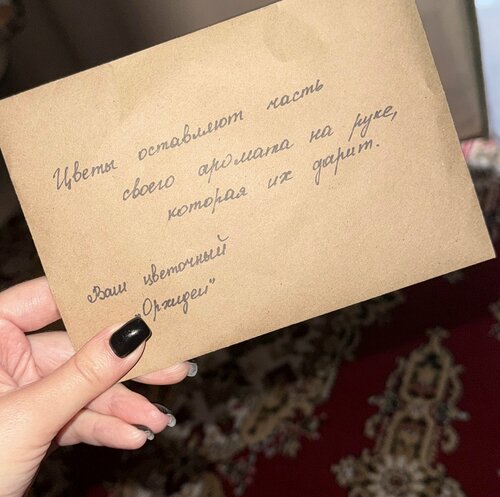 Цветы оставляют часть
своего аромата на руке,
которая их дарит.
Ваш цветочный
"Орхидеи"